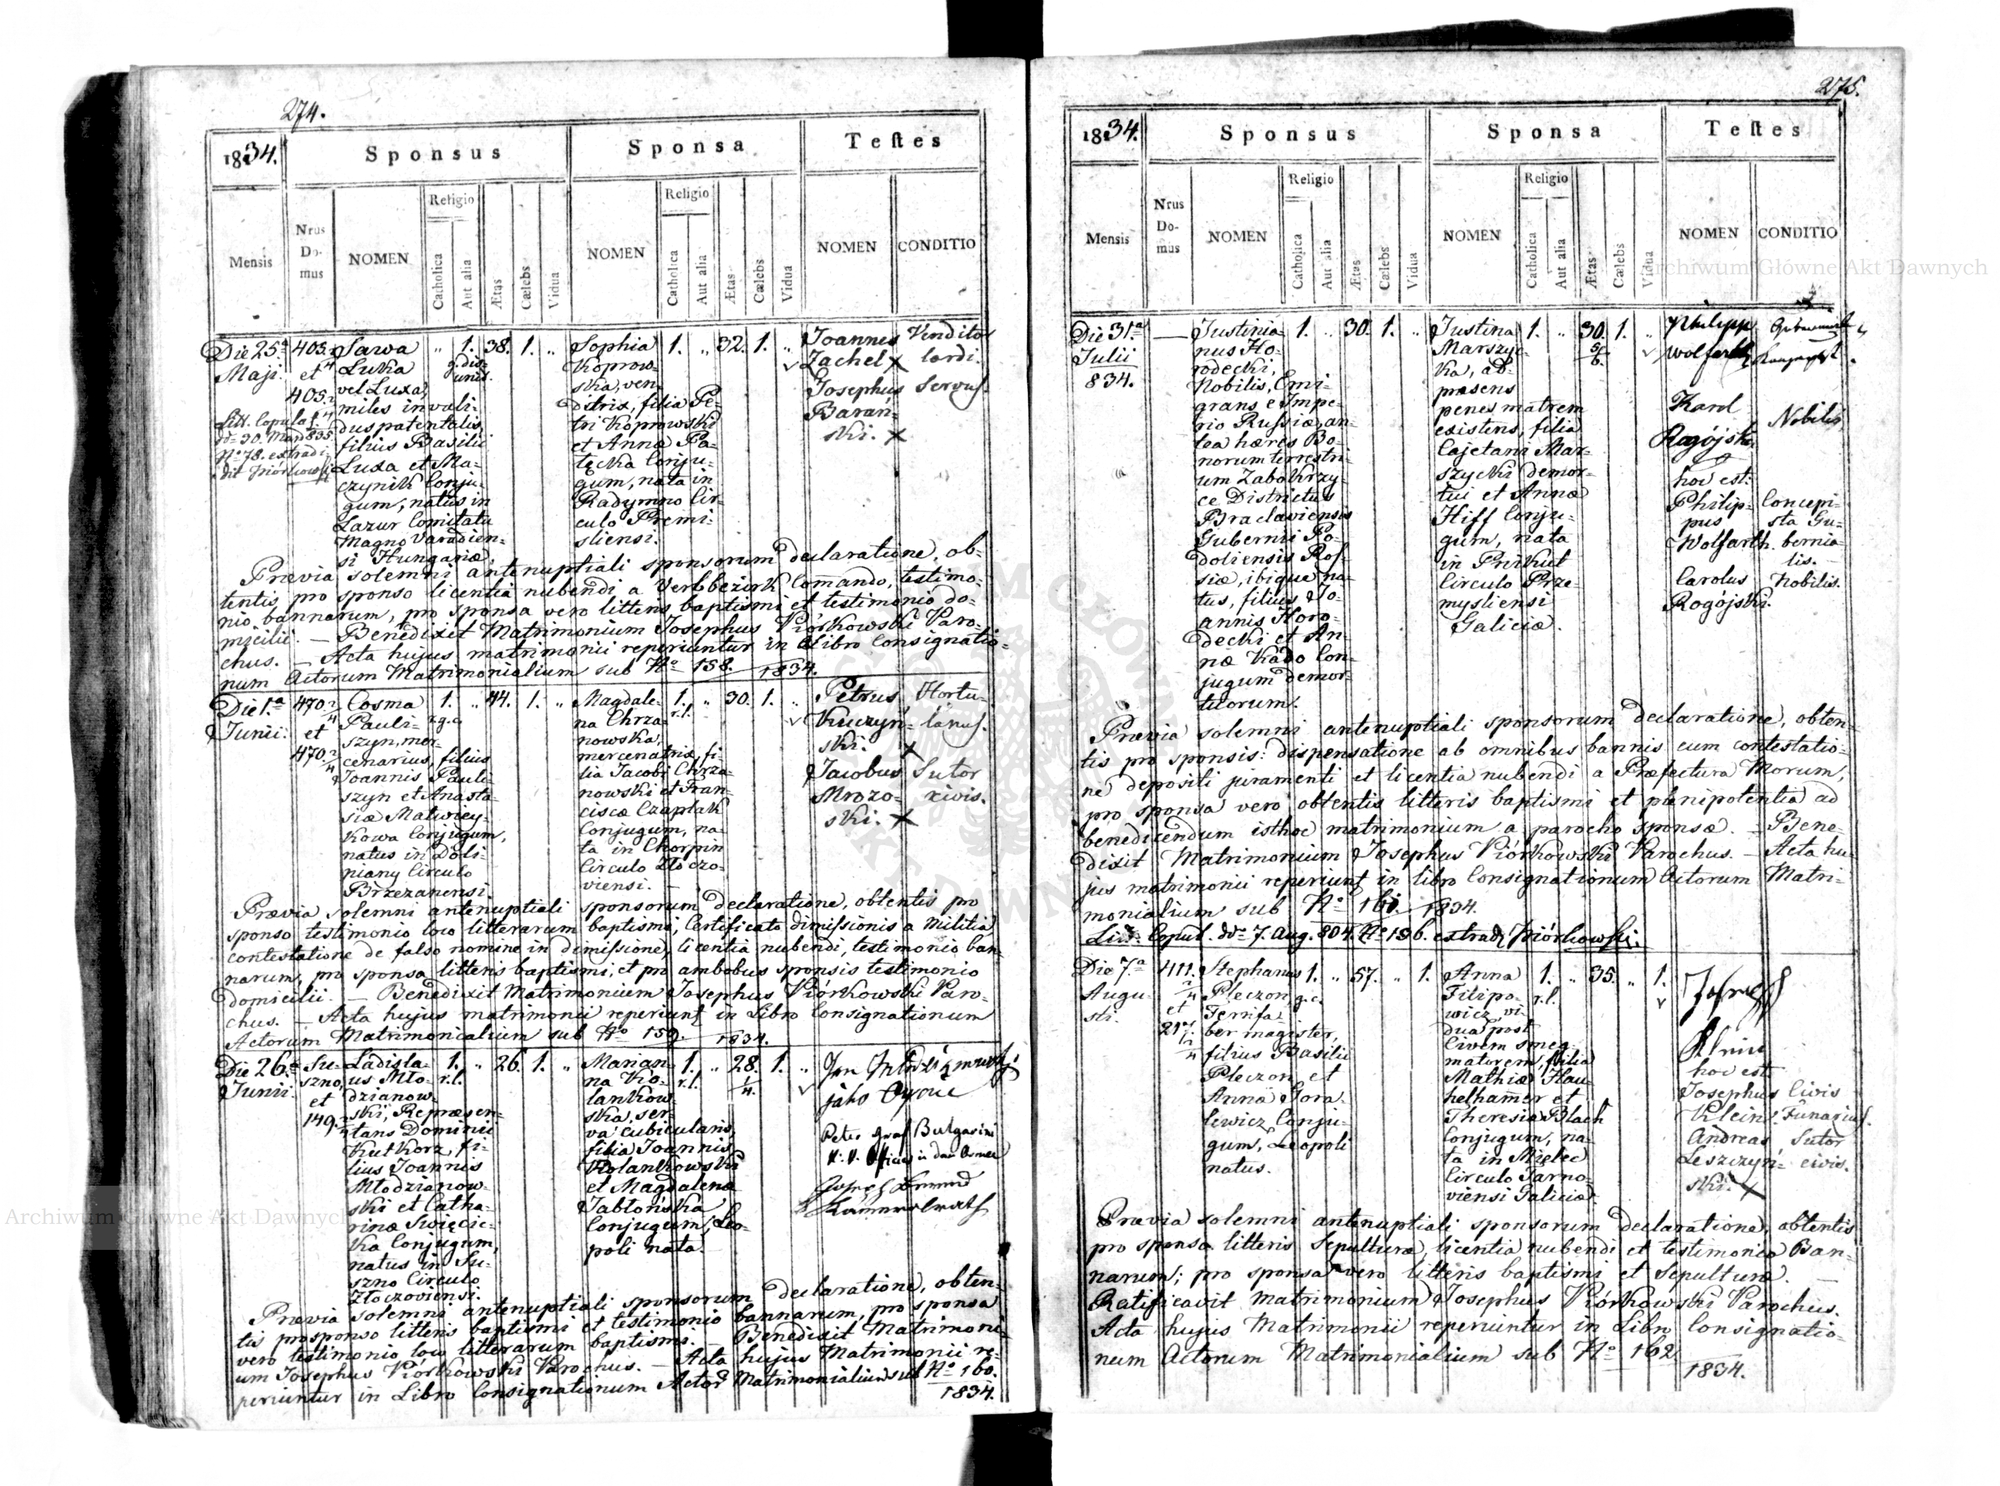 274.
1834.
Sponsus
Sponsa
Testes
Mensis
Nrus Domus
NOMEN
Religio
Catholica
Aut alia
Ætas
Cælebs
Vidua
NOMEN
Religio
Catholica
Aut alia
Ætas
Cælebs
Vidua
NOMEN
CONDITIO
Die 25ª
Maji.
405.
et
405.
Sawa
Luka
vel Luxa,
miles invali-
dus patentalis,
filius Basilii
Luxa et Ma-
czynik Conju-
gum, natus in
Lazur Comitatu
Magno Varadien-
si Hungariæ.
„ 1. 38. 1. „
g. dis-
unit.
Sophia
Koprow-
ska, ven-
ditrix, filia Pe-
tri Koprowski
et Annæ Pa-
tęcka Conju-
gum, nata in
Radymno Cir-
culo Premi-
sliensi.
1. „ 32. 1. „
Joannes
Zachel x
Josephus
Baran-
ski. x
Vendito
lardi.
Servus.
Prævia solemni antenuptiali sponsorum declaratione, ob-
tentis pro sponso licentia nubendi a Werbbezirk Comando, testimo-
nio bannarum, pro sponsa vero litteris baptismi et testimonio do-
micilii. — Benedixit Matrimonium Josephus Piórkowski Paro-
chus. — Acta hujus matrimonii reperiuntur in Libro Consignatio-
num Actorum Matrimonialium sub Nº 158. 1834.
Die 1ª
Junii.
470.
et
470.
Cosma
Pauli-
szyn, mer-
cenarius, filius
Joannis Pauli-
szyn et Anasta-
siæ Matwiey-
kowa Conjugum,
natus in Doli-
niany Circulo
Brzezanensi.
1. „ 44. 1. „
r.g.c.
Magdale-
na Chrza-
nowska,
mercenatrix, fi-
lia Jacobi Chrza-
nowski et Fran-
ciscæ Czaplak
Conjugum, na-
ta in Chorpin
Circulo Złoczo-
viensi.
1. „ 30. 1. „
r.l.
Petrus
Kuczyń-
ski. x
Jacobus
Mrozo-
ski. x
Hortu-
lanus.
Sutor
civis.
Prævia solemni antenuptiali sponsorum declaratione, obtentis pro
sponso testimonio loco litterarum baptismi, Certificato dimissionis a Militia
contestatione de falso nomine in dimissione, licentia nubendi, testimonio ban-
narum, pro sponsa litteris baptismi, et pro ambobus sponsis testimonio
domicilii. — Benedixit Matrimonium Josephus Piórkowski Paro-
chus. — Acta hujus matrimonii reperiunt in Libro Consignationum
Actorum Matrimonialium sub Nº 159. 1834.
Die 26ª
Junii.
Su-
szno,
et
149.
Ladisla-
us Mło-
dzianow-
ski, Repræsen-
tans Dominii
Kutkorz, fi-
lius Joannis
Młodzianow-
ski et Catha-
rinæ Święcic-
ka Conjugum,
natus in Su-
szno Circulo
Złoczoviensi.
1. „ 26. 1. „
r.l.
Marian-
na Ko-
lankow-
ska, ser-
va cubicularis,
filia Joannis
Kolankowski
et Magdalenæ
Jabłońska
Conjugum, Leo-
poli nata.
1. „ 28. 1. „
r.l.
Peter Graf Bulgarini
Prævia solemni antenuptiali sponsorum declaratione, obten-
tis pro sponso litteris baptismi et testimonio bannarum, pro sponsa
vero testimonio loco litterarum baptismi. — Benedixit Matrimoni-
um Josephus Piórkowski Parochus. — Acta hujus Matrimonii re-
periuntur in Libro Consignationum Actor Matrimonialium sub Nº 160.
1834.
275.
1834.
Sponsus
Sponsa
Testes
Mensis
Nrus Domus
NOMEN
Religio
Catholica
Aut alia
Ætas
Cælebs
Vidua
NOMEN
Religio
Catholica
Aut alia
Ætas
Cælebs
Vidua
NOMEN
CONDITIO
Die 31ª
Julii
834.
—
Justinia-
nus Ho-
rodecki,
Nobilis, Emi-
grans e Impe-
rio Russiæ, an-
tea hæres Bo-
norum terrestri-
um Zabokrzy-
ce Districtus
Braclaviensis
Gubernii Po-
doliensis Ros-
siæ, ibique na-
tus, filius Jo-
annis Horo-
decki et An-
næ Kado Con-
jugum demor-
tuorum.
1. „ 30. 1. „
Justina
Marszyc-
ka, ad-
præsens
penes matrem
existens, filia
Cajetani Mar-
szycki demor-
tui et Annæ
Hiff Conju-
gum, nata
in Pnikut
Circulo Prze-
mysliensi
Galiciæ.
1. „ 30. 1. „
Philipp
Wolfarth
Karol
Rogójski
Nobilis
hoc est:
Philip-
pus
Wolfarth.
Carolus
Rogójski.
Concepi-
sta Gu-
bernia-
lis.
Nobilis.
Prævia solemni antenuptiali sponsorum declaratione, obten-
tis pro sponsis: dispensatione ab omnibus bannis cum contestatio-
ne depositi juramenti et licentia nubendi a Præfectura Morum,
pro sponsa vero obtentis litteris baptismi et plenipotentia ad
benedicendum isthoc matrimonium a parocho sponsæ. — Bene-
dixit Matrimonium Josephus Piórkowski Parochus. — Acta hu-
jus matrimonii reperiunt in Libro Consignationum Actorum Matri-
monialium sub Nº 161. 1834.
Litt. Copul. ddº 7. Aug. 834. Nº 156. extrad. Piórkowski.
Die 7ª
Augu-
sti.
411.
et
Stephanus
Pleczon
Ferrifa-
ber magister,
filius Basilii
Pleczon et
Anna Gora-
lewicz Conju-
gum, Leopoli
natus.
1. „ 57. „ 1.
g.c.
Anna
Filipo-
wicz, vi-
dua post
Civem
maturem, filia
Mathiæ Hau-
helhamer et
Theresiæ Blach
Conjugum, na-
ta in Mielec
Circulo Tarno-
viensi Galiciæ.
1. „ 35. „ 1.
r.l.
Joseph
Klein
hoc est
Josephus
Klein.
Andreas
Leszczyń-
ski. x
Civis
Funarius.
Sutor
civis.
Prævia solemni antenuptiali sponsorum declaratione, obtentis
pro sponso litteris Sepulturæ, licentia nubendi et testimonio Ban-
narum; pro sponsa vero litteris baptismi et Sepulturæ. —
Ratificavit Matrimonium Josephus Piórkowski Parochus.
Acta hujus Matrimonii reperiuntur in Libro Consignatio-
num Actorum Matrimonialium sub Nº 162
1834.
Archiwum Główne Akt Dawnych
Archiwum Główne Akt Dawnych